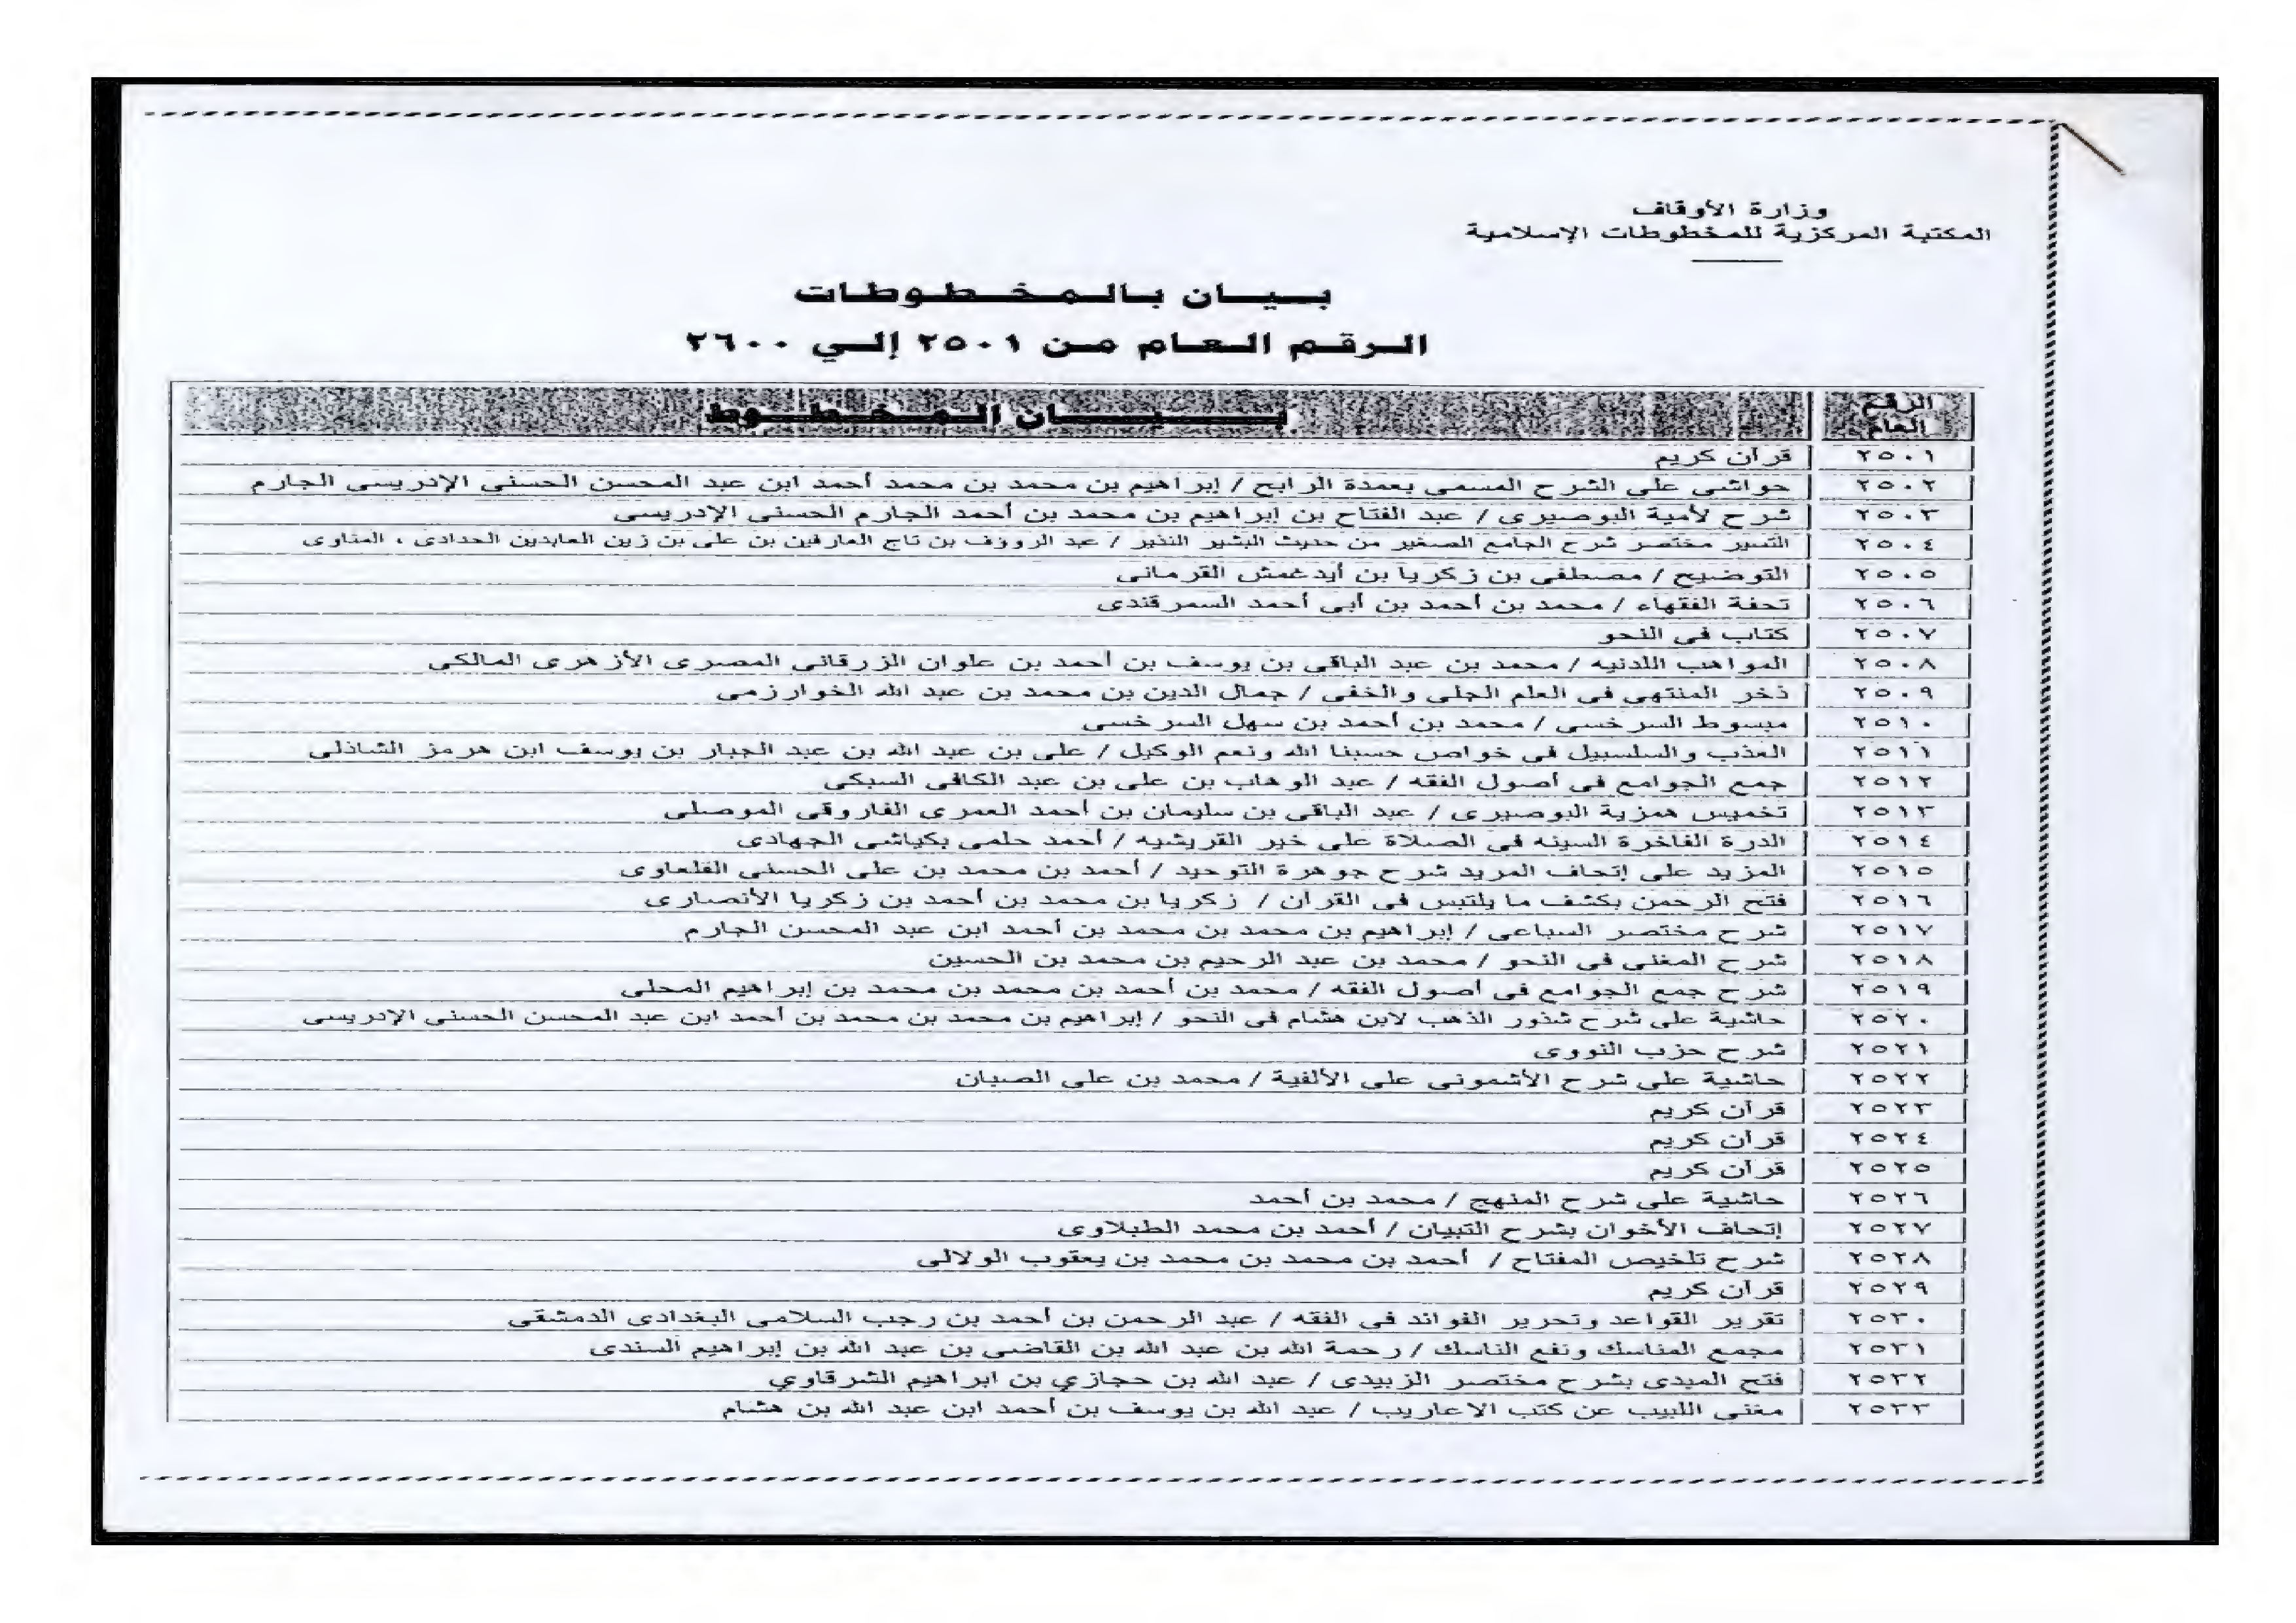 وزارة الأوقاف
المكتبة المركزية للمخطوطات الإسلامية
بيان بالمخطوطات
الرقم العام من ٢٥٠١ إلي ٢٦٠٠
الرقم العام بيان المخطوط
٢٥٠١ قرآن كريم
٢٥٠٢ حواشى على الشرح المسمى بعمدة الرابح / إبراهيم بن محمد بن محمد أحمد ابن عبد المحسن الحسنى الإدريسى الجارم
٢٥٠٣ شرح لأمية البوصيرى / عبد الفتاح بن إبراهيم بن محمد بن أحمد الجارم الحسنى الإدريسى
٢٥٠٤ التسير مختصر شرح الجامع الصغير من حديث البشير النذير / عبد الرووف بن تاج العارفين بن على بن زين العابدين الحدادى ، المناوى
٢٥٠٥ التوضيح / مصطفى بن زكريا بن أيدغمش القرمانى
٢٥٠٦ تحفة الفقهاء / محمد بن أحمد بن أبى أحمد السمرقندى
٢٥٠٧ كتاب فى النحو
٢٥٠٨ المواهب اللدنيه / محمد بن عبد الباقى بن يوسف بن أحمد بن علوان الزرقانى المصرى الأزهرى المالكى
٢٥٠٩ ذخر المنتهى فى العلم الجلى والخفى / جمال الدين بن محمد بن عبد الله الخوارزمى
٢٥١٠ مبسوط السرخسى / محمد بن أحمد بن سهل السرخسى
٢٥١١ العذب والسلسبيل فى خواص حسبنا الله ونعم الوكيل / على بن عبد الله بن عبد الجبار بن يوسف ابن هرمز الشاذلى
٢٥١٢ جمع الجوامع فى أصول الفقه / عبد الوهاب بن على بن عبد الكافى السبكى
٢٥١٣ تخميس همزية البوصيرى / عبد الباقى بن سليمان بن أحمد العمرى الفاروقى الموصلى
٢٥١٤ الدرة الفاخرة السينه فى الصلاة على خير القريشيه / أحمد حلمى بكباشى الجهادى
٢٥١٥ المزيد على إتحاف المريد شرح جوهرة التوحيد / أحمد بن محمد بن على الحسنى القلعاوى
٢٥١٦ فتح الرحمن بكشف ما يلتبس فى القرآن / زكريا بن محمد بن أحمد بن زكريا الأنصارى
٢٥١٧ شرح مختصر السباعى / إبراهيم بن محمد بن محمد بن أحمد ابن عبد المحسن الجارم
٢٥١٨ شرح المغنى فى النحو / محمد بن عبد الرحيم بن محمد بن الحسين
٢٥١٩ شرح جمع الجوامع فى أصول الفقه / محمد بن أحمد بن محمد بن محمد بن إبراهيم المحلى
٢٥٢٠ حاشية على شرح شذور الذهب لابن هشام فى النحو / إبراهيم بن محمد بن محمد بن أحمد ابن عبد المحسن الحسنى الإدريسى
٢٥٢١ شرح حزب النووى
٢٥٢٢ حاشية على شرح الأشمونى على الألفية / محمد بن على الصبان
٢٥٢٣ قرآن كريم
٢٥٢٤ قرآن كريم
٢٥٢٥ قرآن كريم
٢٥٢٦ حاشية على شرح المنهج / محمد بن أحمد
٢٥٢٧ إتحاف الأخوان بشرح التبيان / أحمد بن محمد الطبلاوى
٢٥٢٨ شرح تلخيص المفتاح / أحمد بن محمد بن محمد بن يعقوب الولالى
٢٥٢٩ قرآن كريم
٢٥٣٠ تقرير القواعد وتحرير الفوائد فى الفقه / عبد الرحمن بن أحمد بن رجب السلامى البغدادى الدمشقى
٢٥٣١ مجمع المناسك ونفع الناسك / رحمة الله بن عبد الله بن القاضى بن عبد الله بن إبراهيم السندى
٢٥٣٢ فتح المبدى بشرح مختصر الزبيدى / عبد الله بن حجازي بن ابراهيم الشرقاوي
٢٥٣٣ مغنى اللبيب عن كتب الاعاريب / عبد الله بن يوسف بن أحمد ابن عبد الله بن هشام